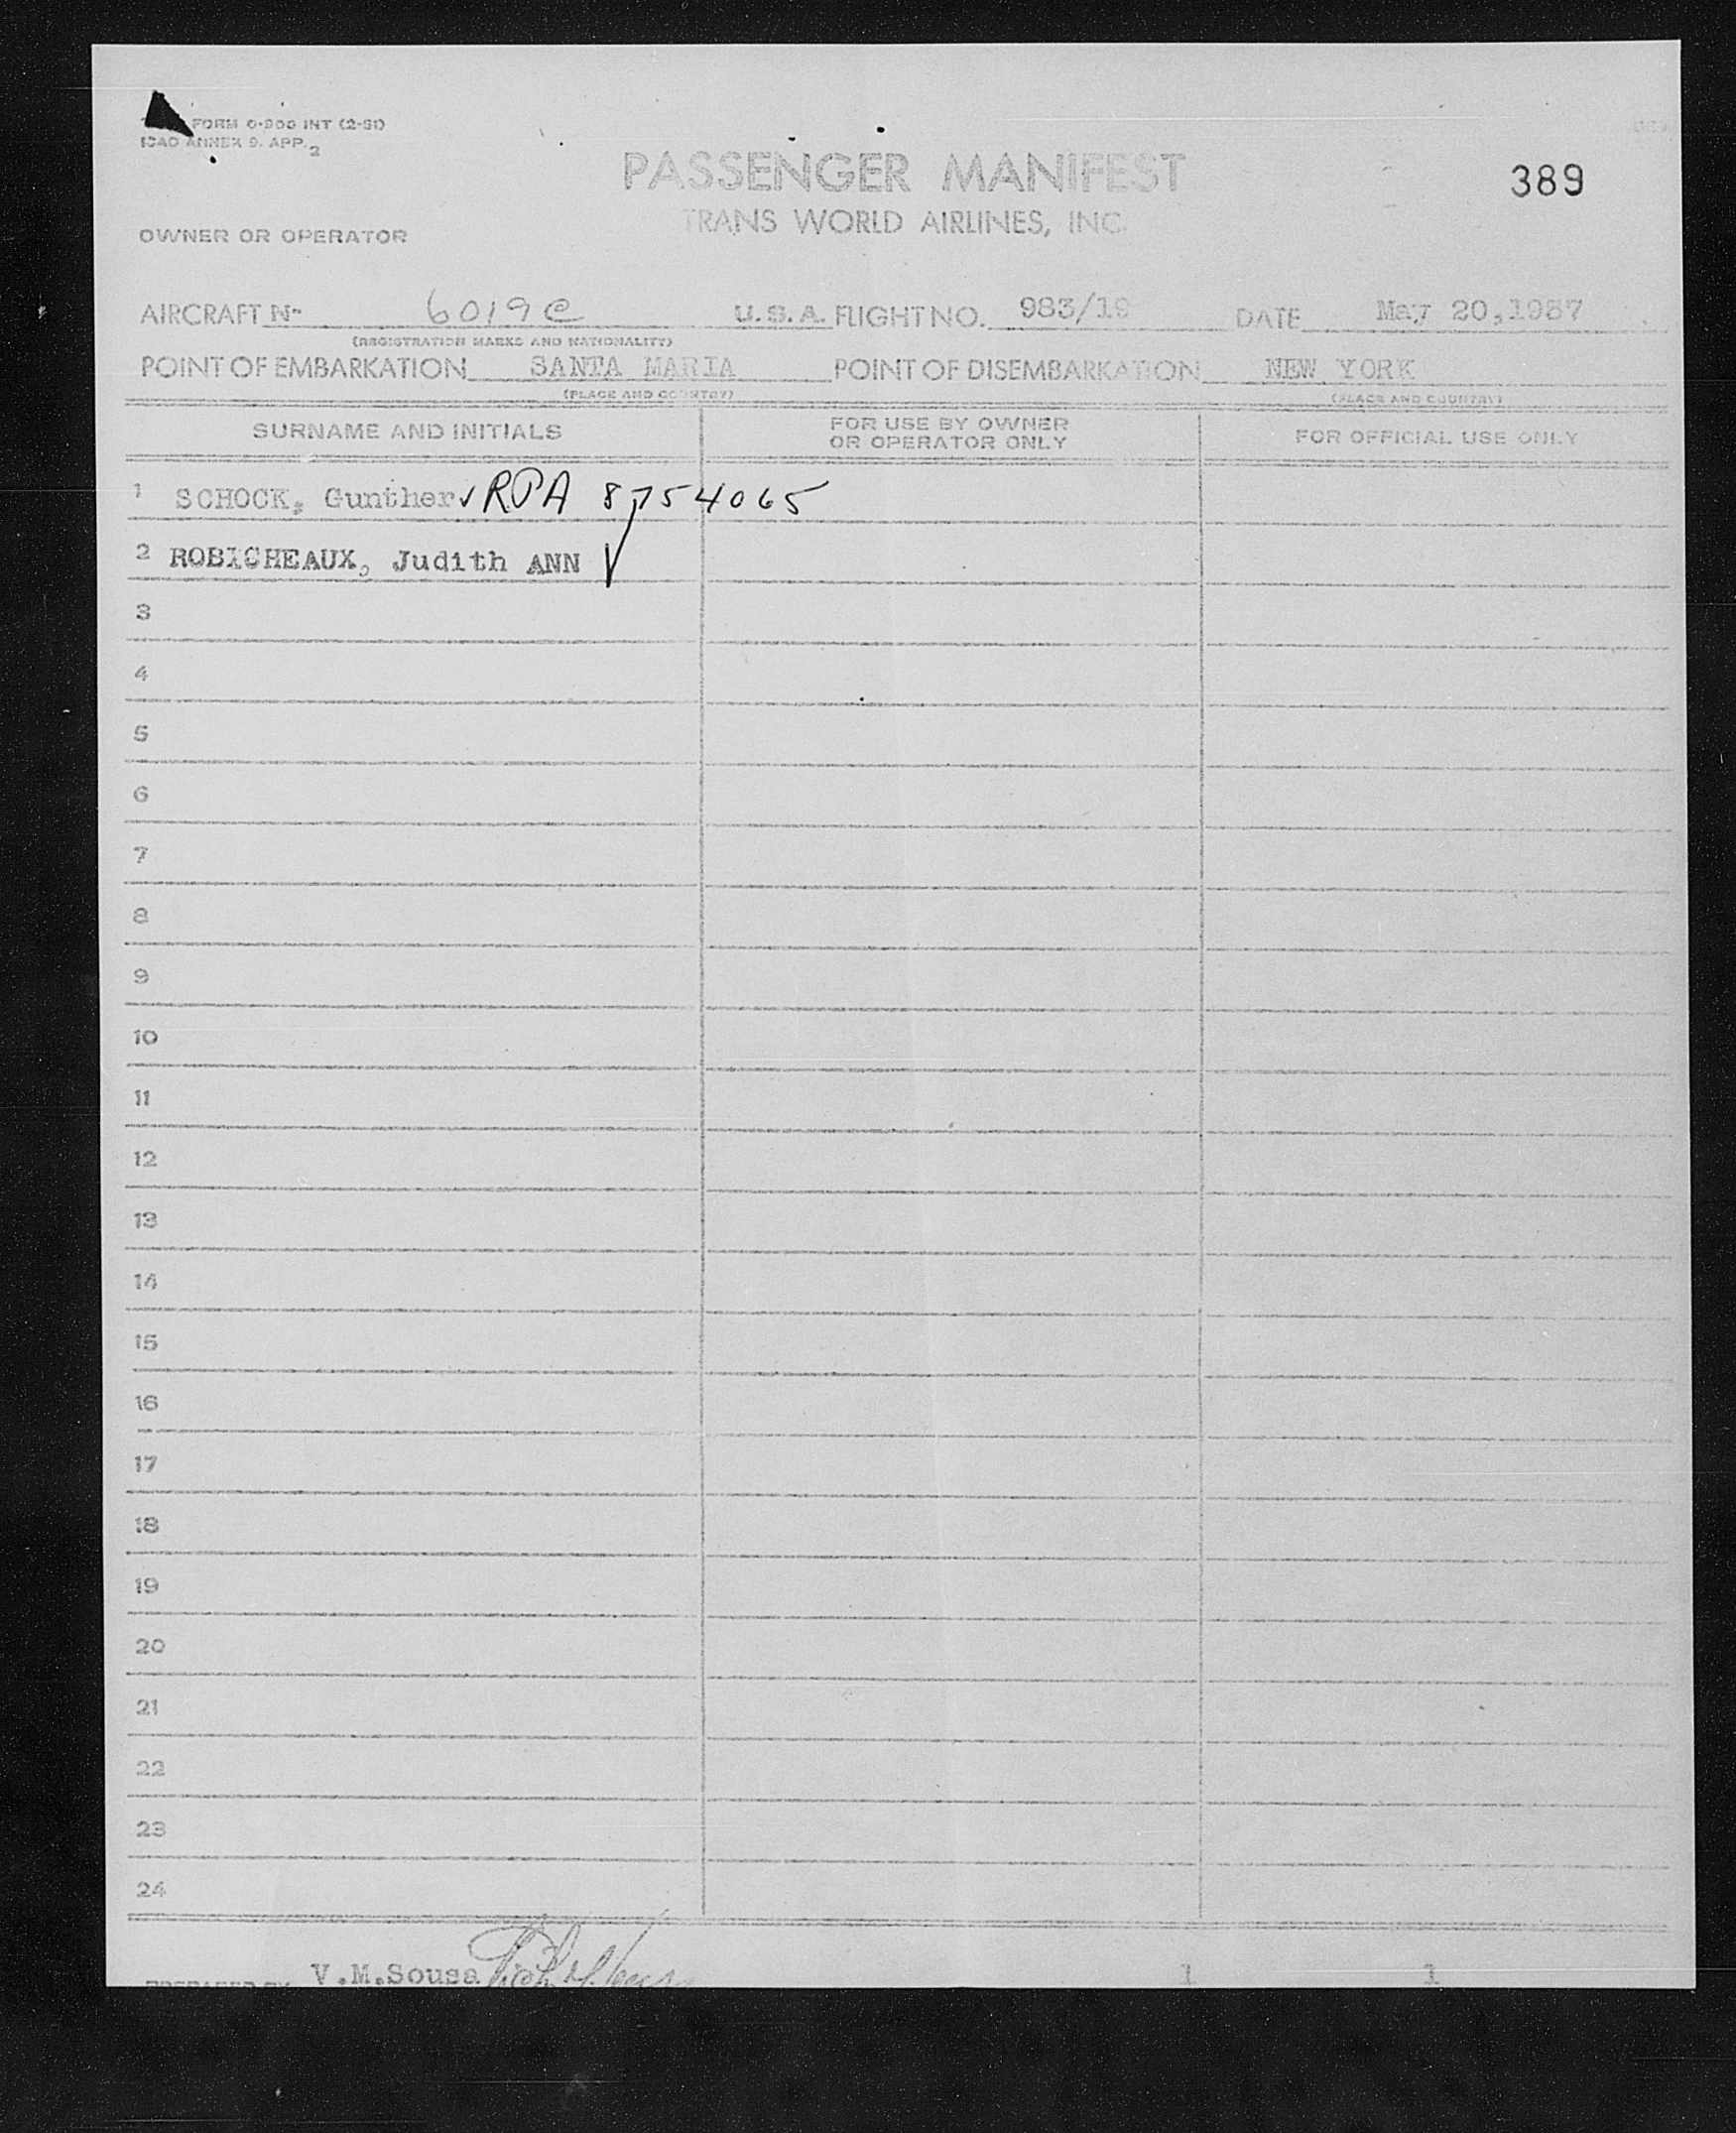 FORM O-900 INT (2-51)
ICAO ANNEX 9. APP. 2
PASSENGER MANIFEST
389
TRANS WORLD AIRLINES, INC.
OWNER OR OPERATOR
AIRCRAFT N- 6019C U.S.A. FLIGHT NO. 983/19 DATE May 20,1957
(REGISTRATION MARKS AND NATIONALITY)
POINT OF EMBARKATION SANTA MARIA POINT OF DISEMBARKATION NEW YORK
(PLACE AND COUNTRY) (PLACE AND COUNTRY)
SURNAME AND INITIALS FOR USE BY OWNER OR OPERATOR ONLY FOR OFFICIAL USE ONLY
1 SCHOCK, Gunther ✓ RPA 8754065
2 ROBICHEAUX, Judith ANN ✓
3
4
5
6
7
8
9
10
11
12
13
14
15
16
17
18
19
20
21
22
23
24
PREPARED BY V.M.Sousa 1 1